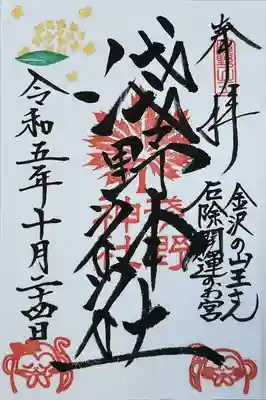 奉拝
金沢の山王さん
厄除開運のお宮
淺野神社
令和五年十月二十四日